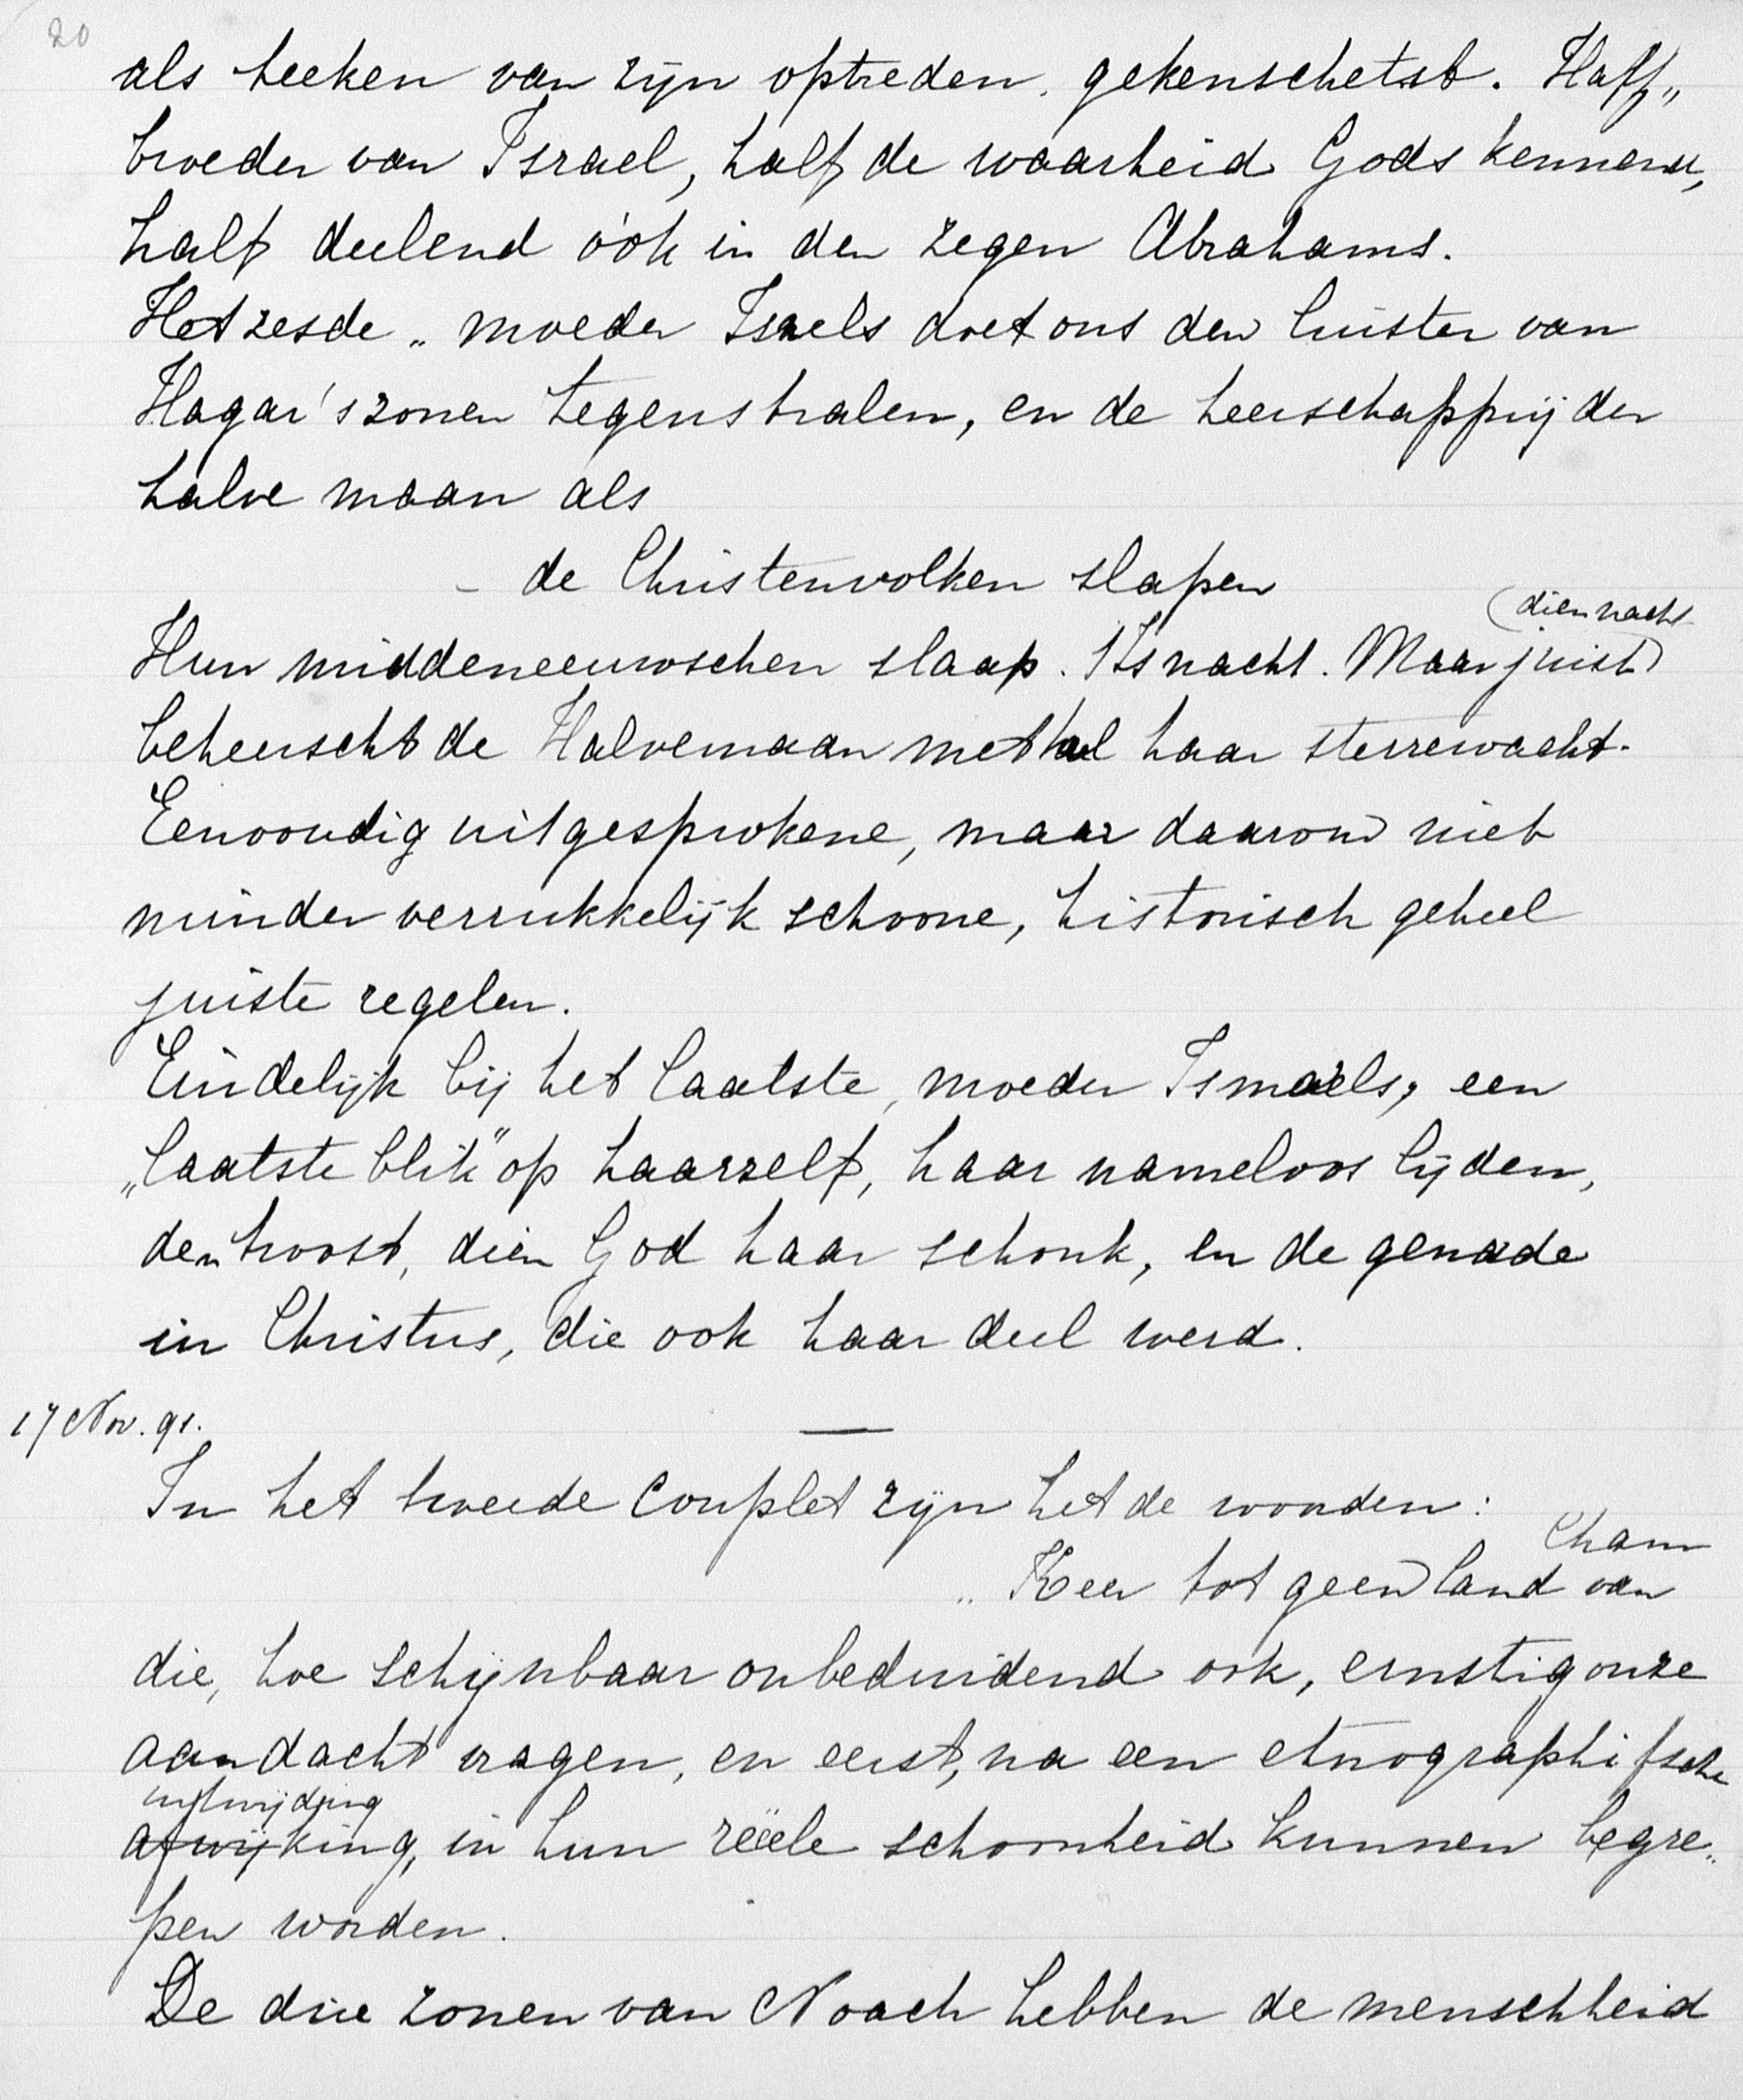 20
als teeken van zijn optreden gekenschetst. Half„
broeder van Israel, half de waarheid Gods kennend,
half deelend óók in den zegen Abrahams.
Het zesde „ moeder Ismels doet ons den luister van
Hagar's zonen tegenstralen, en de heerschappij der
halve maan als
– de Christenvolken slapen
(dien nacht
Hun middeneeuwschen slaap. 't Is nacht. Maar juist)
beheerscht de Halvemaan met al haar sterrewacht.
Eenvoudig uitgesprokene, maar daarom niet
minder verrukkelijk schoone, historisch geheel
juiste regelen.
Eindelijk bij het laatste, moeder Ismaëls, een
„laatste blik" op haarzelf, haar nameloos lijden,
den troost, dien God haar schonk, en de genade
in Christus, die ook haar deel werd.
17 Nov. 91.
In het tweede couplet zijn het de woorden:
Cham
„ Keer tot geen land van
die, hoe schijnbaar onbeduidend ook, ernstig onze
aandacht vragen, en eerst, na een etnographifsche
uitwijding
afwijking, in hun reëele schoonheid kunnen begre„
pen worden.
De drie zonen van Noach hebben de menschheid